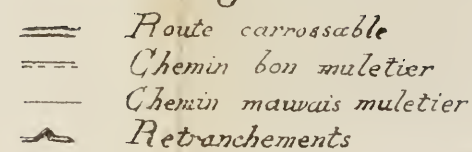 Route carrossable
Chemin bon muletier
Chemin mauvais muletier
Retranchements